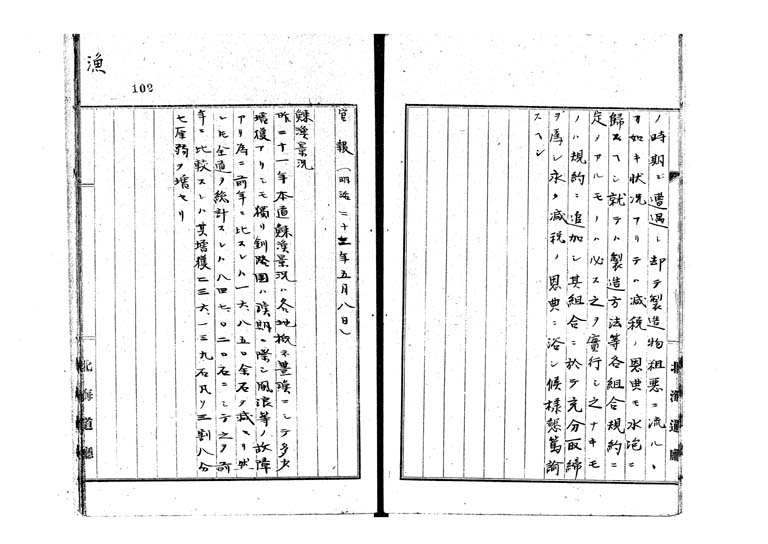 ノ時期ニ遭遇シ却テ製造物粗悪ニ流ルヽ
カ如キ状況アリテハ減税ノ恩典モ水泡ニ
歸スヘシ就テハ製造方法等各組合規約ニ
定ノアルモノハ必ス之ヲ實行シ之ナキモ
ノハ規約ニ追加シ其組合ニ於テ充分取締
ヲ為シ永ク減税ノ恩典ニ浴シ候様懇篤諭
スヘシ
北海道廳
漁
102
官報(明治二十二年五月八日)
鰊漁景况
昨二十一年本道鰊漁景况ハ各地概ネ豊漁ニシテ多少
増獲アリシモ獨リ釧路國ハ漁期ニ際シ風浪等ノ故障
アリ為ニ前年ニ比スレハ一六、八五〇余石ヲ減セリ然
レトモ全道ヲ統計スレハ八四七、〇二〇石ニシテ之ヲ前
年ニ比較スレハ其増獲二三六、一三九石凡ソ三割八分
七厘弱ヲ増セリ
北海道廳